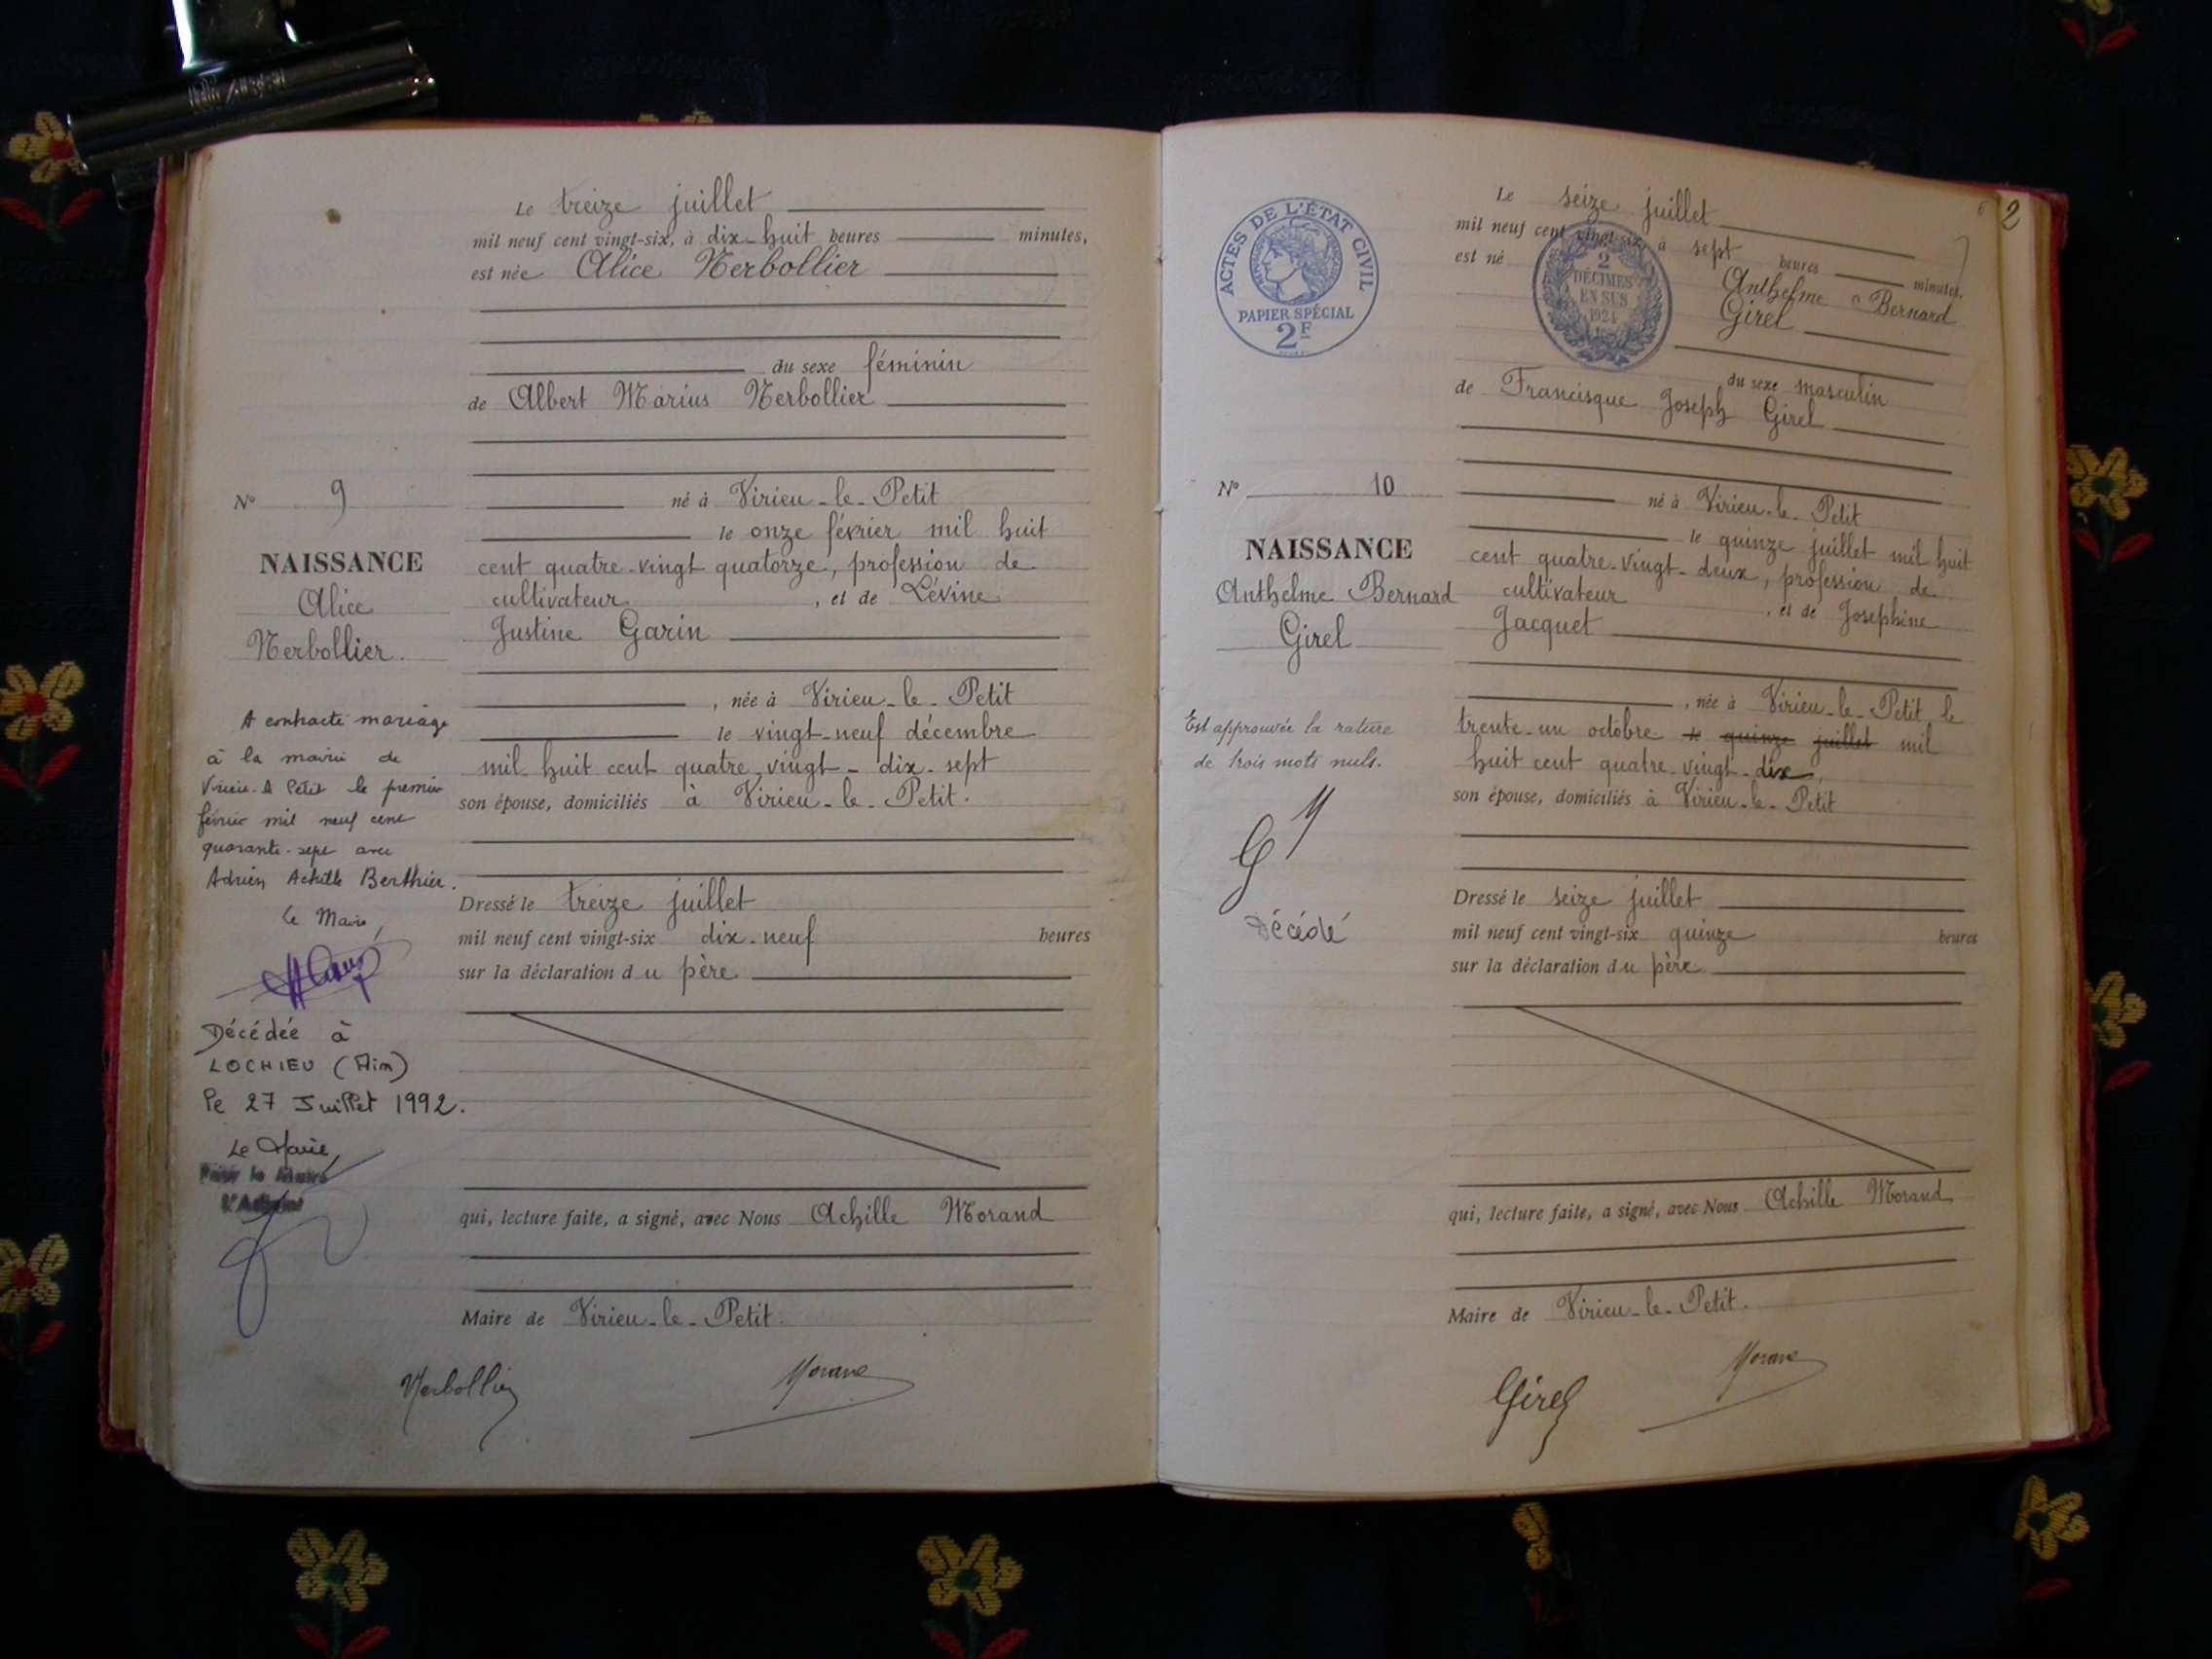 Le treize juillet
mil neuf cent vingt-six, à dix-huit heures minutes,
est née Alice Nerbollier
du sexe féminin
de Albert Marius Nerbollier
né à Virieu-le-Petit
le onze février mil huit
cent quatre-vingt quatorze, profession de
cultivateur, et de Lévine
Justine Garin
, née à Virieu-le-Petit
le vingt-neuf décembre
mil huit cent quatre-vingt-dix-sept
son épouse, domiciliés à Virieu-le-Petit.
Dressé le treize juillet
mil neuf cent vingt-six dix-neuf heures
sur la déclaration du père
qui, lecture faite, a signé, avec Nous Achille Morand
Maire de Virieu-le-Petit.
Nerbollier
Morand
N° 9
NAISSANCE
Alice
Nerbollier.
A contracté mariage
à la mairie de
Virieu-le Petit le premier
février mil neuf cent
quarante-sept avec
Adrien Achille Berthier.
Le Maire,
Décédée à
LOCHIEU (Ain)
le 27 Juillet 1992.
Le Maire,
Pour le Maire
L'Adjoint
2
Le seize juillet
mil neuf cent vingt-six à sept heures minutes,
est né Anthelme Bernard
Girel
du sexe masculin
de Francisque Joseph Girel
né à Virieu-le-Petit
le quinze juillet mil huit
cent quatre-vingt-deux, profession de
cultivateur, et de Joséphine
Jacquet
, née à Virieu-le-Petit le
trente-un octobre le quinze juillet mil
huit cent quatre-vingt-dix,
son épouse, domiciliés à Virieu-le-Petit
Dressé le seize juillet
mil neuf cent vingt-six quinze heures
sur la déclaration du père
qui, lecture faite, a signé, avec Nous Achille Morand,
Maire de Virieu-le-Petit.
Girel
Morand
ACTES DE L'ÉTAT CIVIL
PAPIER SPÉCIAL
2F
2
DÉCIMES
EN SUS
1924
N° 10
NAISSANCE
Anthelme Bernard
Girel
Est approuvée la rature
de trois mots nuls.
G M
Décédé